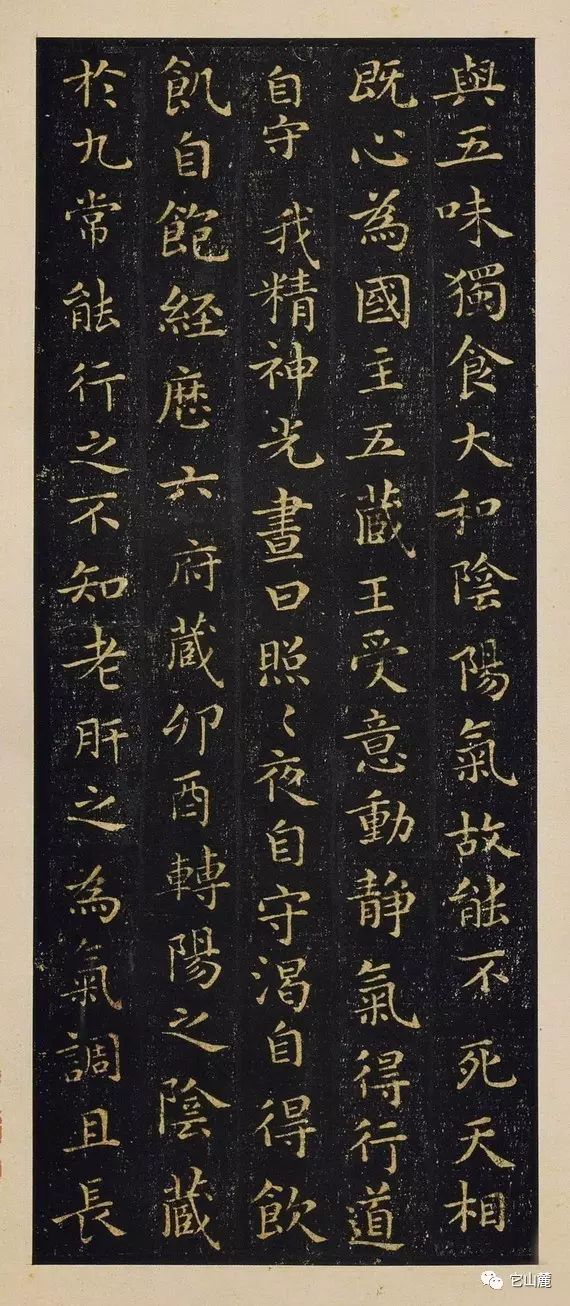 與五味獨食大和陰陽氣故能不死天相
既心為國主五藏王受意動靜氣得行道
自守我精神光晝日照〻夜自守渴自得飲
飢自飽經歷六府藏卯酉轉陽之陰藏
於九常能行之不知老肝之為氣調且長
它山麓